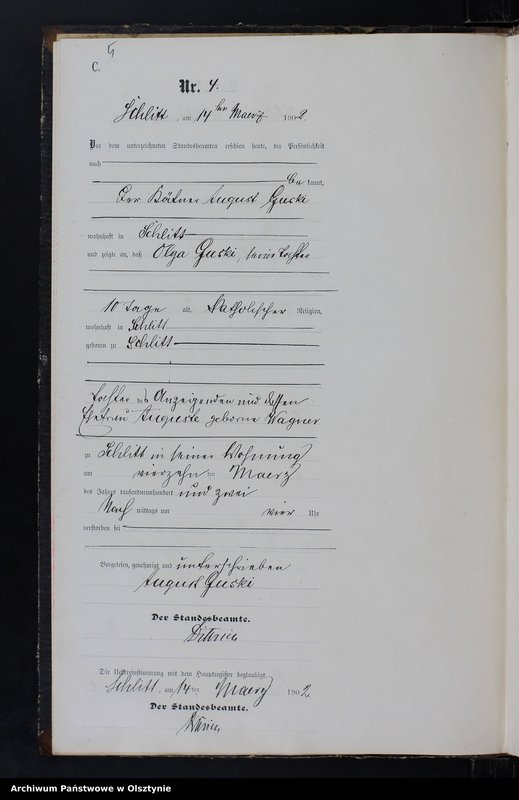 C.
5
Nr. 4.
Schlitt, am 14ten Maerz 1902
Vor dem unterzeichneten Standesbeamten erschien heute, der Persönlichkeit
nach
be kannt,
der Kätner August Guski
wohnhaft in Schlitt
und zeigte an, daß Olga Guski, seine Tochter
10 Tage alt, katholischer Religion,
wohnhaft in Schlitt
geboren zu Schlitt
Tochter des Anzeigenden und dessen
Ehefrau Auguste geborne Wagner
zu Schlitt in seiner Wohnung
am vierzehn ten Maerz
des Jahres tausendneunhundert und zwei
Nach mittags um vier Uhr
verstorben sei
Vorgelesen, genehmigt und unterschrieben
August Guski
Der Standesbeamte.
Die Uebereinstimmung mit dem Hauptregister beglaubigt.
Schlitt, am 14 ten Maerz 1902
Der Standesbeamte.
Archiwum Państwowe w Olsztynie